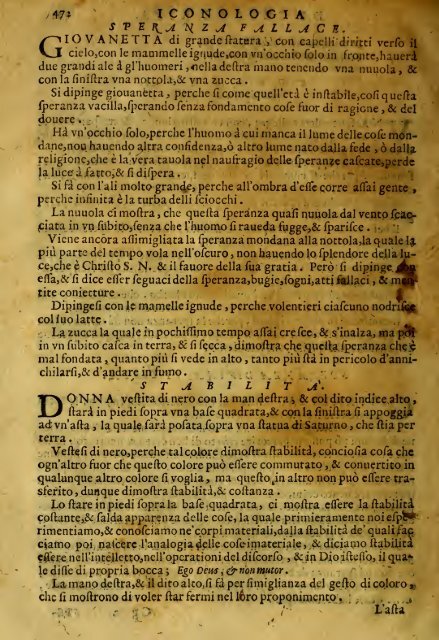 472 ICONOLOGIA
SPERANZA FALLACE.
GIOVANETTA di grande statura, con capelli diritti verso il
cielo, con le mammelle ignude, con vn'occhio solo in fronte, hauerà
due grandi ale à gl'huomeri, nella destra mano tenendo vna nuuola, &
con la sinistra vna nottola, & vna zucca.
Si dipinge giouanetta, perche si come quell'età è instabile, così questa
speranza vacilla, sperando senza fondamento cose fuor di ragione, & del
douere.
Hà vn'occhio solo, perche l'huomo à cui manca il lume delle cose mon-
dane, non hauendo altra confidenza, ò altro lume nato dalla fede, ò dalla
religione, che è la vera tauola nel naufragio delle speranze cascate, perde
la luce à fatto, & si dispera.
Si fà con l'ali molto grande, perche all'ombra d'esse corre assai gente,
perche infinita è la turba delli sciocchi.
La nuuola ci mostra, che questa speranza quasi nuuola dal vento scac-
ciata in vn subito, senza che l'huomo si raueda fugge, & sparisce.
Viene ancora assimigliata la speranza mondana alla nottola, la quale la
più parte del tempo vola nell'oscuro, non hauendo lo splendore della lu-
ce, che è Christo S. N. & il fauore della sua gratia. Però si dipinge con
essa, & si dice esser seguaci della speranza, bugie, sogni, atti fallaci, & men-
tite coniecture.
Dipingesi con le mamelle ignude, perche volentieri ciascuno nodrisce
col suo latte.
La zucca la quale in pochissimo tempo assai cresce, & s'inalza, ma poi
in vn subito casca in terra, & si secca, dimostra che questa speranza che è
mal fondata, quanto più si vede in alto, tanto più stà in pericolo d'anni-
chilarsi, & d'andare in fumo.
STABILITÀ.
DONNA vestita di nero con la man destra, & col dito indice alto,
starà in piedi sopra vna base quadrata, & con la sinistra si appoggia
ad vn'asta, la quale sarà posata sopra vna statua di Saturno, che stia per
terra.
Vestesi di nero, perche tal colore dimostra stabilità, conciosia cosa che
ogn'altro fuor che questo colore può essere commutato, & conuertito in
qualunque altro colore si voglia, ma questo in altro non può essere tra-
sferito, dunque dimostra stabilità, & costanza.
Lo stare in piedi sopra la base quadrata, ci mostra essere la stabilità
costante, & salda apparenza delle cose, la quale primieramente noi espe-
rimentiamo, & conosciamo ne' corpi materiali, dalla stabilità de' quali fac-
ciamo poi nascere l'analogia delle cose materiale, & diciamo stabilità
essere nell'intelletto, nell'operationi del discorso, & in Dio istesso, il qua-
le disse di propria bocca; Ego Deus, & non mutor.
La mano destra, & il dito alto, si fà per simiglianza del gesto di coloro,
che si mostrono di voler star fermi nel loro proponimento.
L'asta